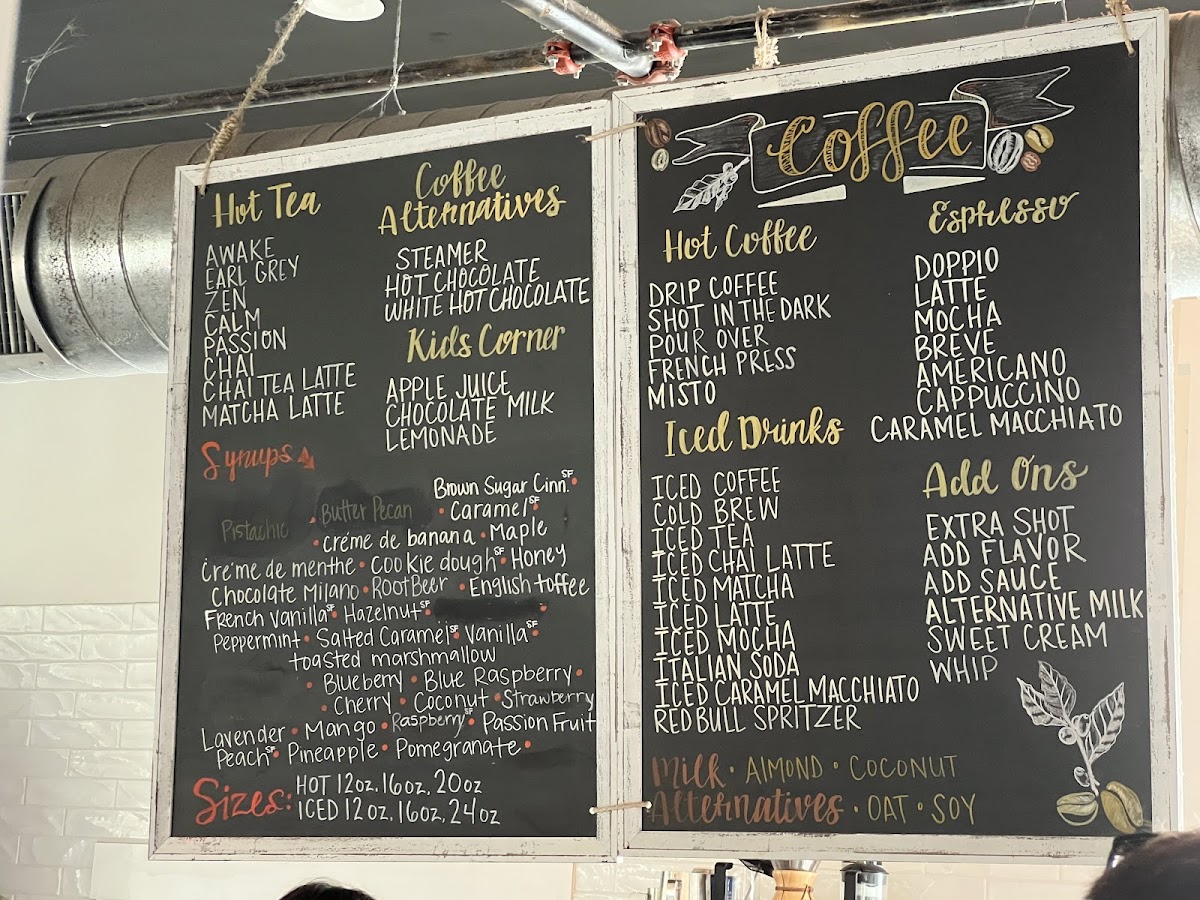 Hot Tea
AWAKE
EARL GREY
ZEN
CALM
PASSION
CHAI
CHAI TEA LATTE
MATCHA LATTE
Coffee
Alternatives
STEAMER
HOT CHOCOLATE
WHITE HOT CHOCOLATE
Kids Corner
APPLE JUICE
CHOCOLATE MILK
LEMONADE
Syrups
Brown Sugar Cinn. SF •
Pistachio • Butter Pecan • Caramel SF •
• créme de banana • Maple
Créme de menthe • cookie dough SF • Honey
Chocolate Milano • Root Beer • English toffee
French Vanilla SF • Hazelnut SF • •
Peppermint • Salted Caramel SF • Vanilla SF •
toasted marshmallow
• Blueberry • Blue Raspberry •
• Cherry • Coconut • Strawberry
Lavender • Mango • Raspberry SF • Passion Fruit
Peach SF • Pineapple • Pomegranate •
Sizes: HOT 12oz, 16oz, 20oz
ICED 12oz, 16oz, 24oz
Coffee
Hot Coffee
DRIP COFFEE
SHOT IN THE DARK
POUR OVER
FRENCH PRESS
MISTO
Iced Drinks
ICED COFFEE
COLD BREW
ICED TEA
ICED CHAI LATTE
ICED MATCHA
ICED LATTE
ICED MOCHA
ITALIAN SODA
ICED CARAMEL MACCHIATO
RED BULL SPRITZER
Espresso
DOPPIO
LATTE
MOCHA
BREVE
AMERICANO
CAPPUCCINO
CARAMEL MACCHIATO
Add Ons
EXTRA SHOT
ADD FLAVOR
ADD SAUCE
ALTERNATIVE MILK
SWEET CREAM
WHIP
Milk • ALMOND • COCONUT
Alternatives • OAT • SOY